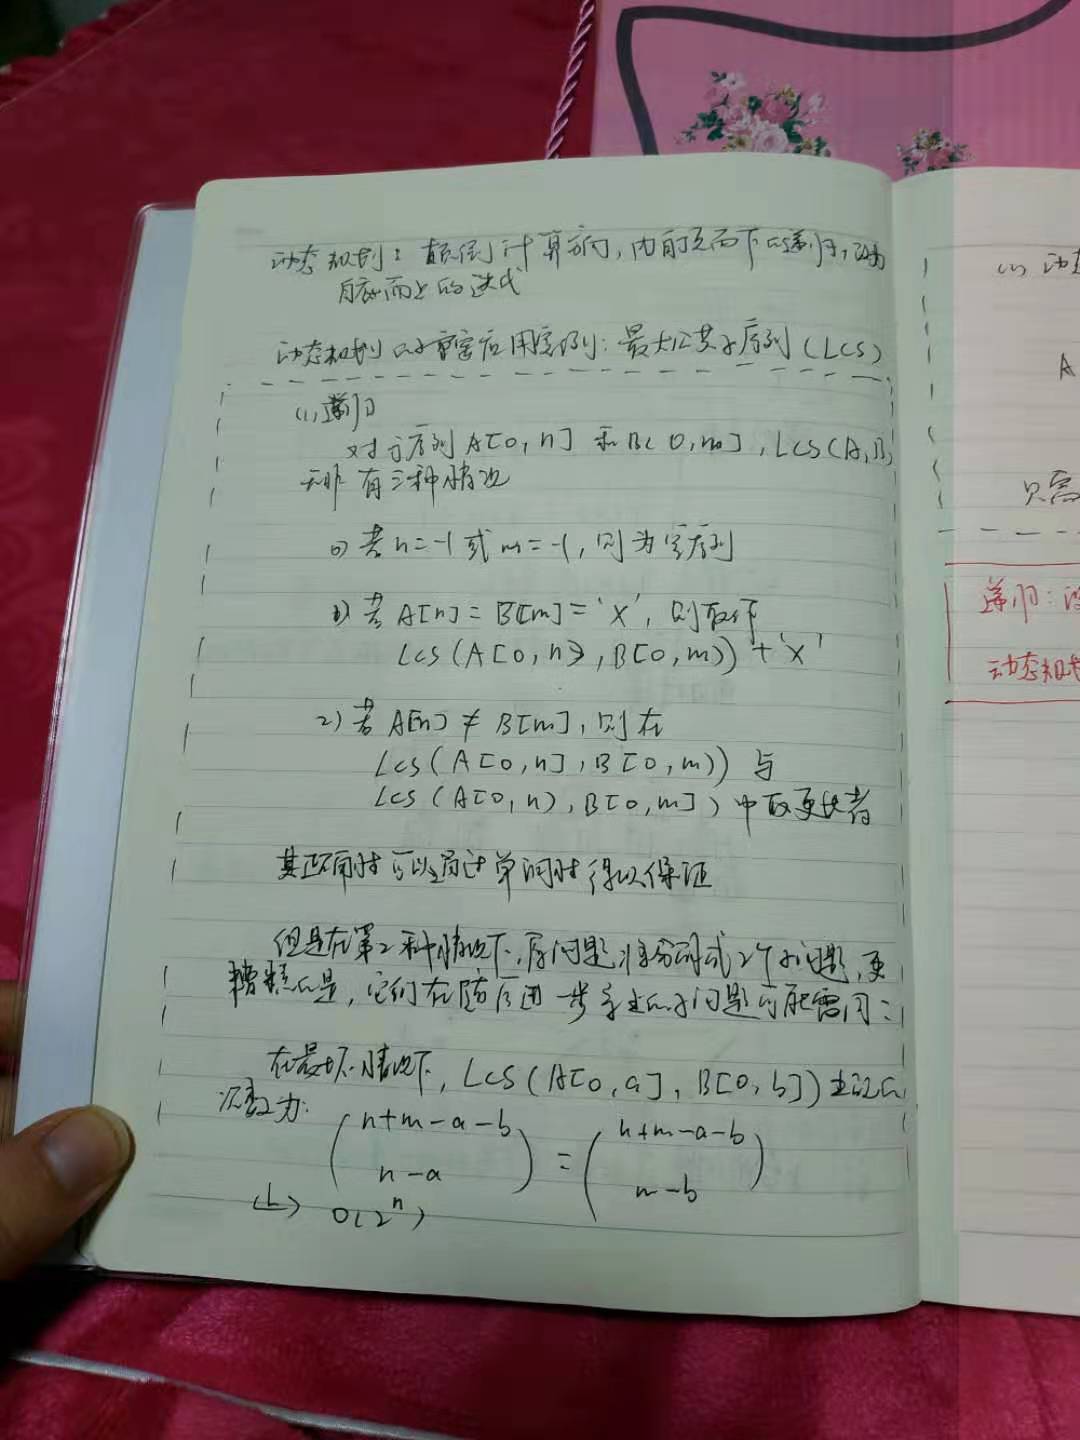 动态规划：颠倒计算方向，由自顶而下的递归，改为
自底而上的迭代
动态规划的重要应用实例：最大公共子序列 (LCS)
(1) 递归
对于序列 A[0, n] 和 B[0, m], LCS(A, B)
无非有三种情况
0) 若 n = -1 或 m = -1, 则为空序列
1) 若 A[n] = B[m] = 'X', 则取作
LCS(A[0, n), B[0, m)) + 'X'
2) 若 A[n] ≠ B[m], 则在
LCS(A[0, n], B[0, m)) 与
LCS(A[0, n), B[0, m]) 中取更长者
其正确性可以通过单调性得以保证
但是在第2种情况下，原问题将分解成2个子问题，更
糟糕的是，它们在随后进一步导出的子问题可能雷同：
在最坏情况下, LCS(A[0, a], B[0, b]) 出现的
次数为:
(n+m-a-b n-a) = (n+m-a-b m-b)
O(2^n)
(1) 动态
A
只需
递归：
动态规